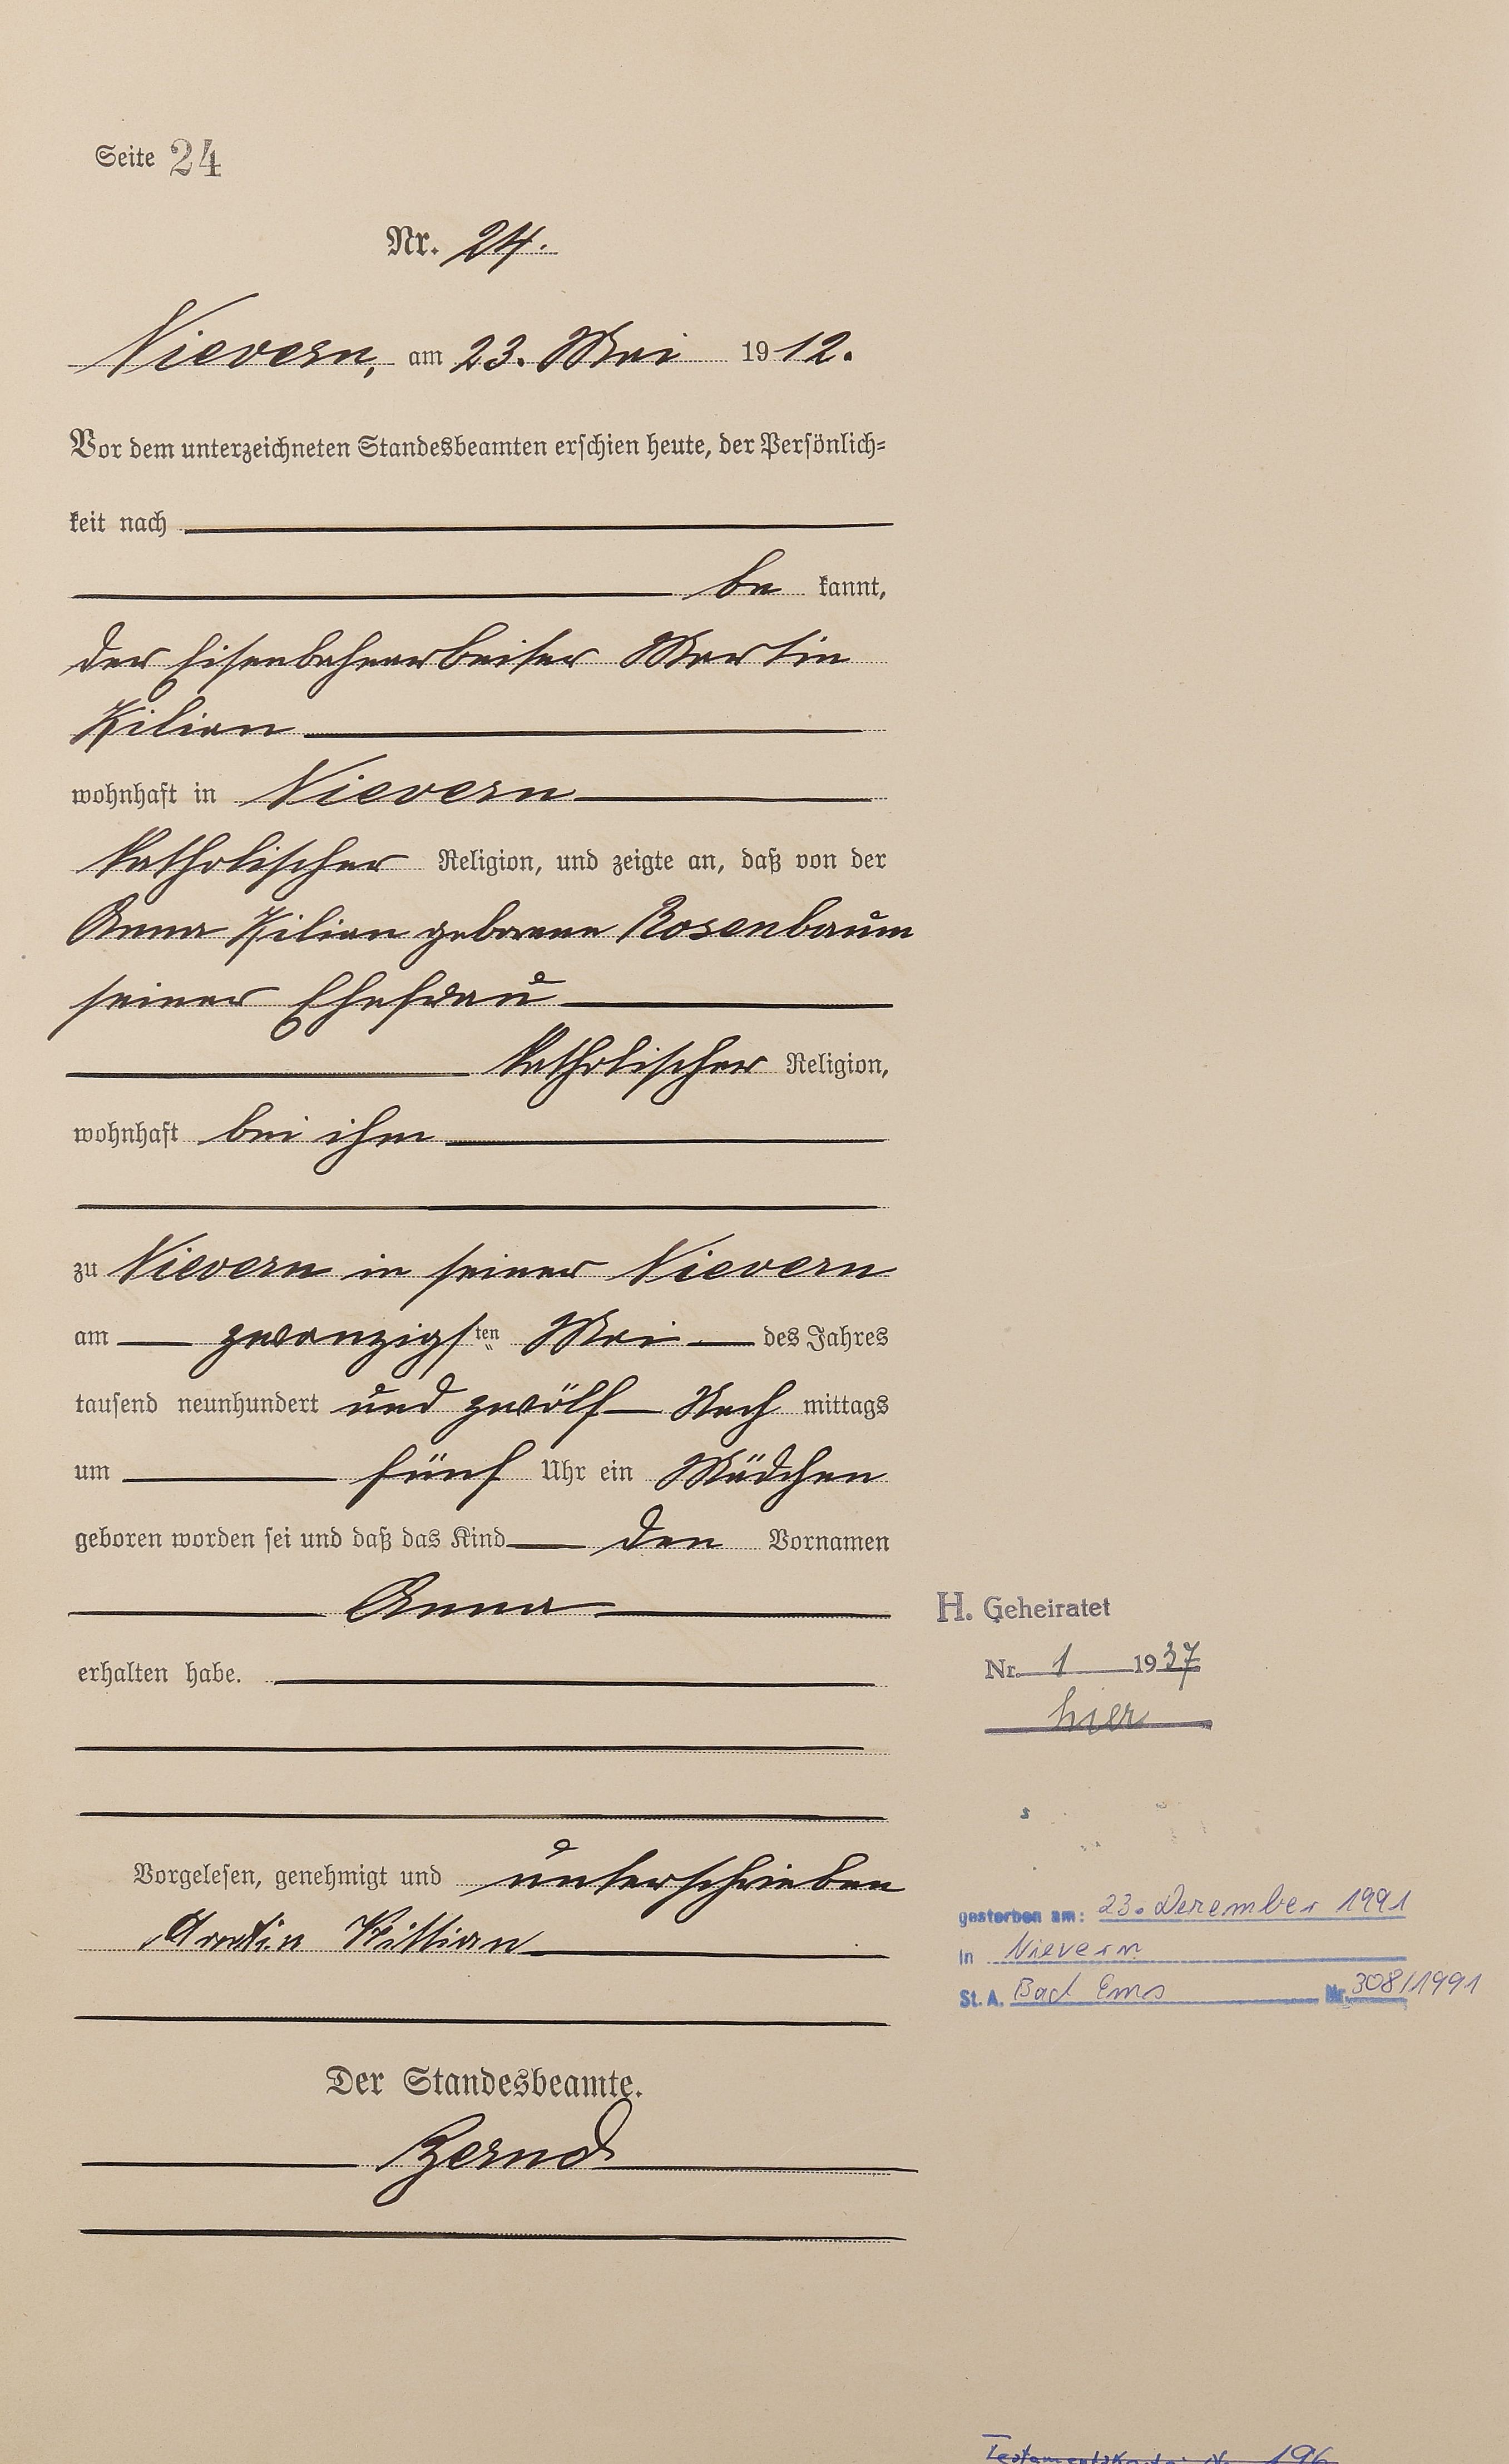 Seite 24
Nr. 24.
Nievern, am 23. Mai 1912.
Vor dem unterzeichneten Standesbeamten erschien heute, der Persönlich=
keit nach
be kannt,
der Eisenbahnarbeiter Martin
Kilian
wohnhaft in Nievern
katholischer Religion, und zeigte an, daß von der
Anna Kilian geborene Rosenbaum
seiner Ehefrau
katholischer Religion,
wohnhaft bei ihm
zu Nievern in seiner Nievern
am zwanzigsten Mai des Jahres
tausend neunhundert und zwölf Nach mittags
um fünf Uhr ein Mädchen
geboren worden sei und daß das Kind den Vornamen
Anna
erhalten habe.
H. Geheiratet
Nr. 1 1937
hier
Vorgelesen, genehmigt und unterschrieben
Killian
gestorben am: 23. Dezember 1991
in Nievern
St. A. Bad Ems Nr. 308/1991
Der Standesbeamte.
Zernd
196